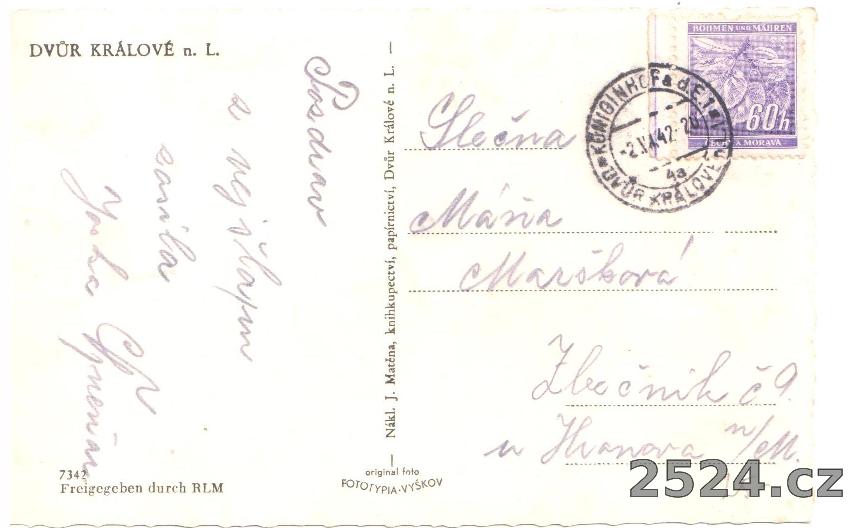 DVŮR KRÁLOVÉ n. L.
Pozdrav
z
zasílá
Nákl. J. Matěna, knihkupectví, papírnictví, Dvůr Králové n. L.
BÖHMEN UND MÄHREN
60h
ČECHY A MORAVA
KÖNIGINHOF a. d. E. 1
DVŮR KRÁLOVÉ
4a
Slečna
Máňa
Maršková
Zbečník č 9.
u Hronova n/M.
7342
Freigegeben durch RLM
original foto
FOTOTYPIA-VYŠKOV
2524.cz